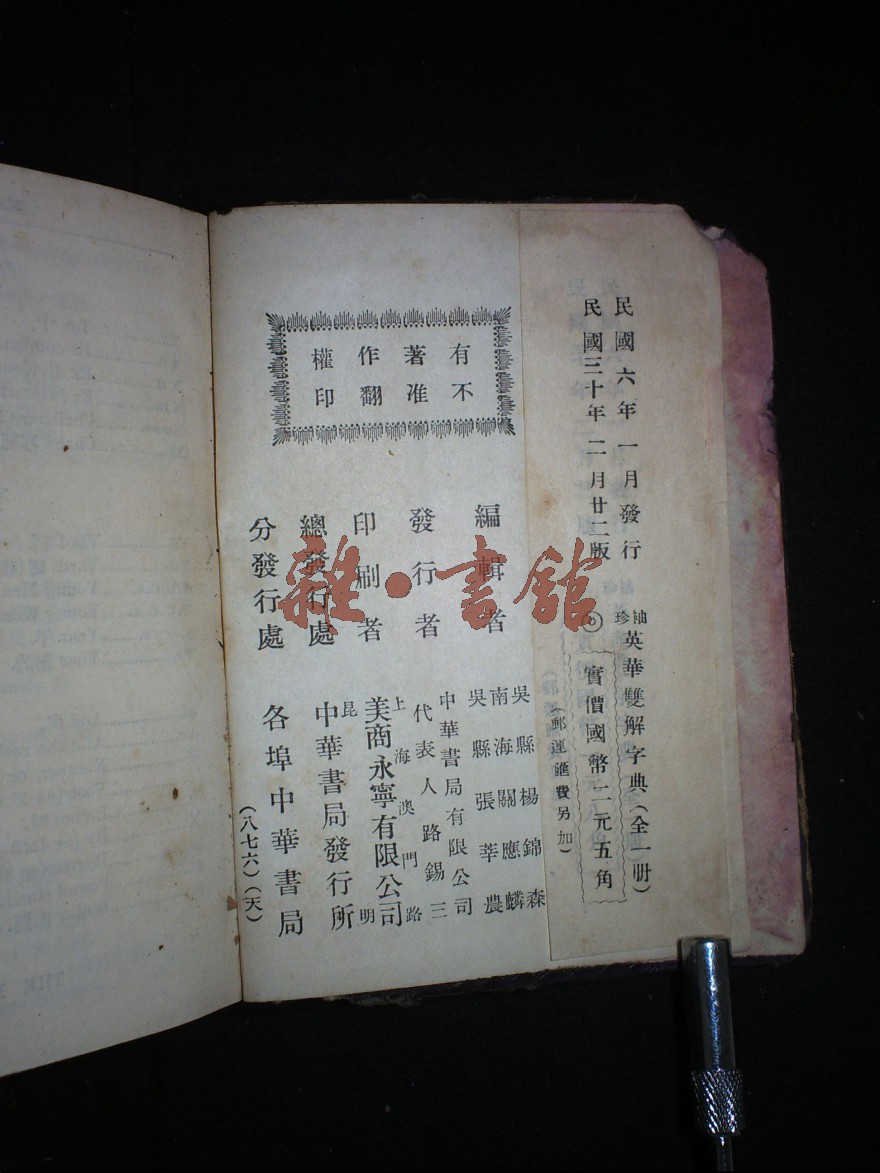 民國六年一月發行
民國三十年二月廿二版
袖珍英華雙解字典(全一册)
◎實價國幣二元五角
(郵運匯費另加)
有不
著准
作翻
權印
編輯者
吳縣楊錦森
南海關應麟
吳縣張莘農
發行者
中華書局有限公司
代表人路錫三
印刷者
上海澳門路
美商永寧有限公司
總發行處
昆明
中華書局發行所
分發行處
各埠中華書局
(八七六)(天)
雜·書館